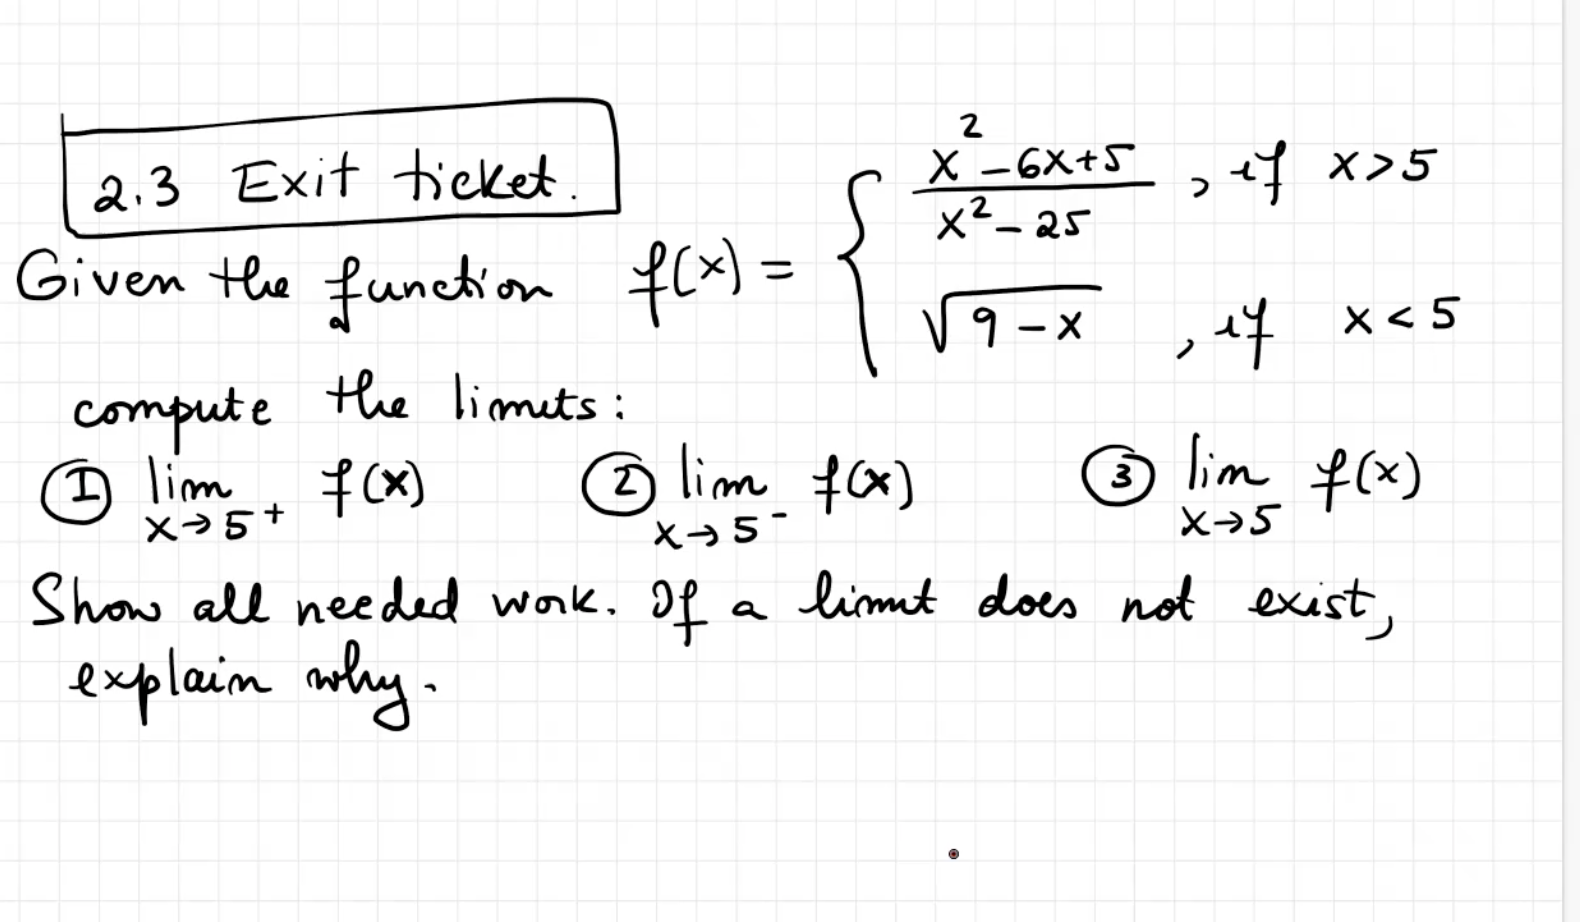 2.3 Exit ticket.
Given the function f(x) = { (x² - 6x + 5)/(x² - 25) , if x > 5
√(9 - x) , if x < 5
compute the limits:
① lim x→5⁺ f(x) ② lim x→5⁻ f(x) ③ lim x→5 f(x)
Show all needed work. If a limit does not exist,
explain why.